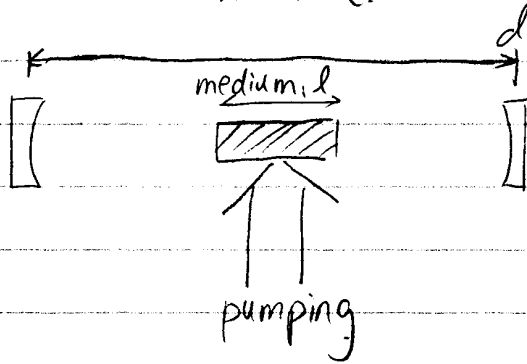 d
medium, l
pumping